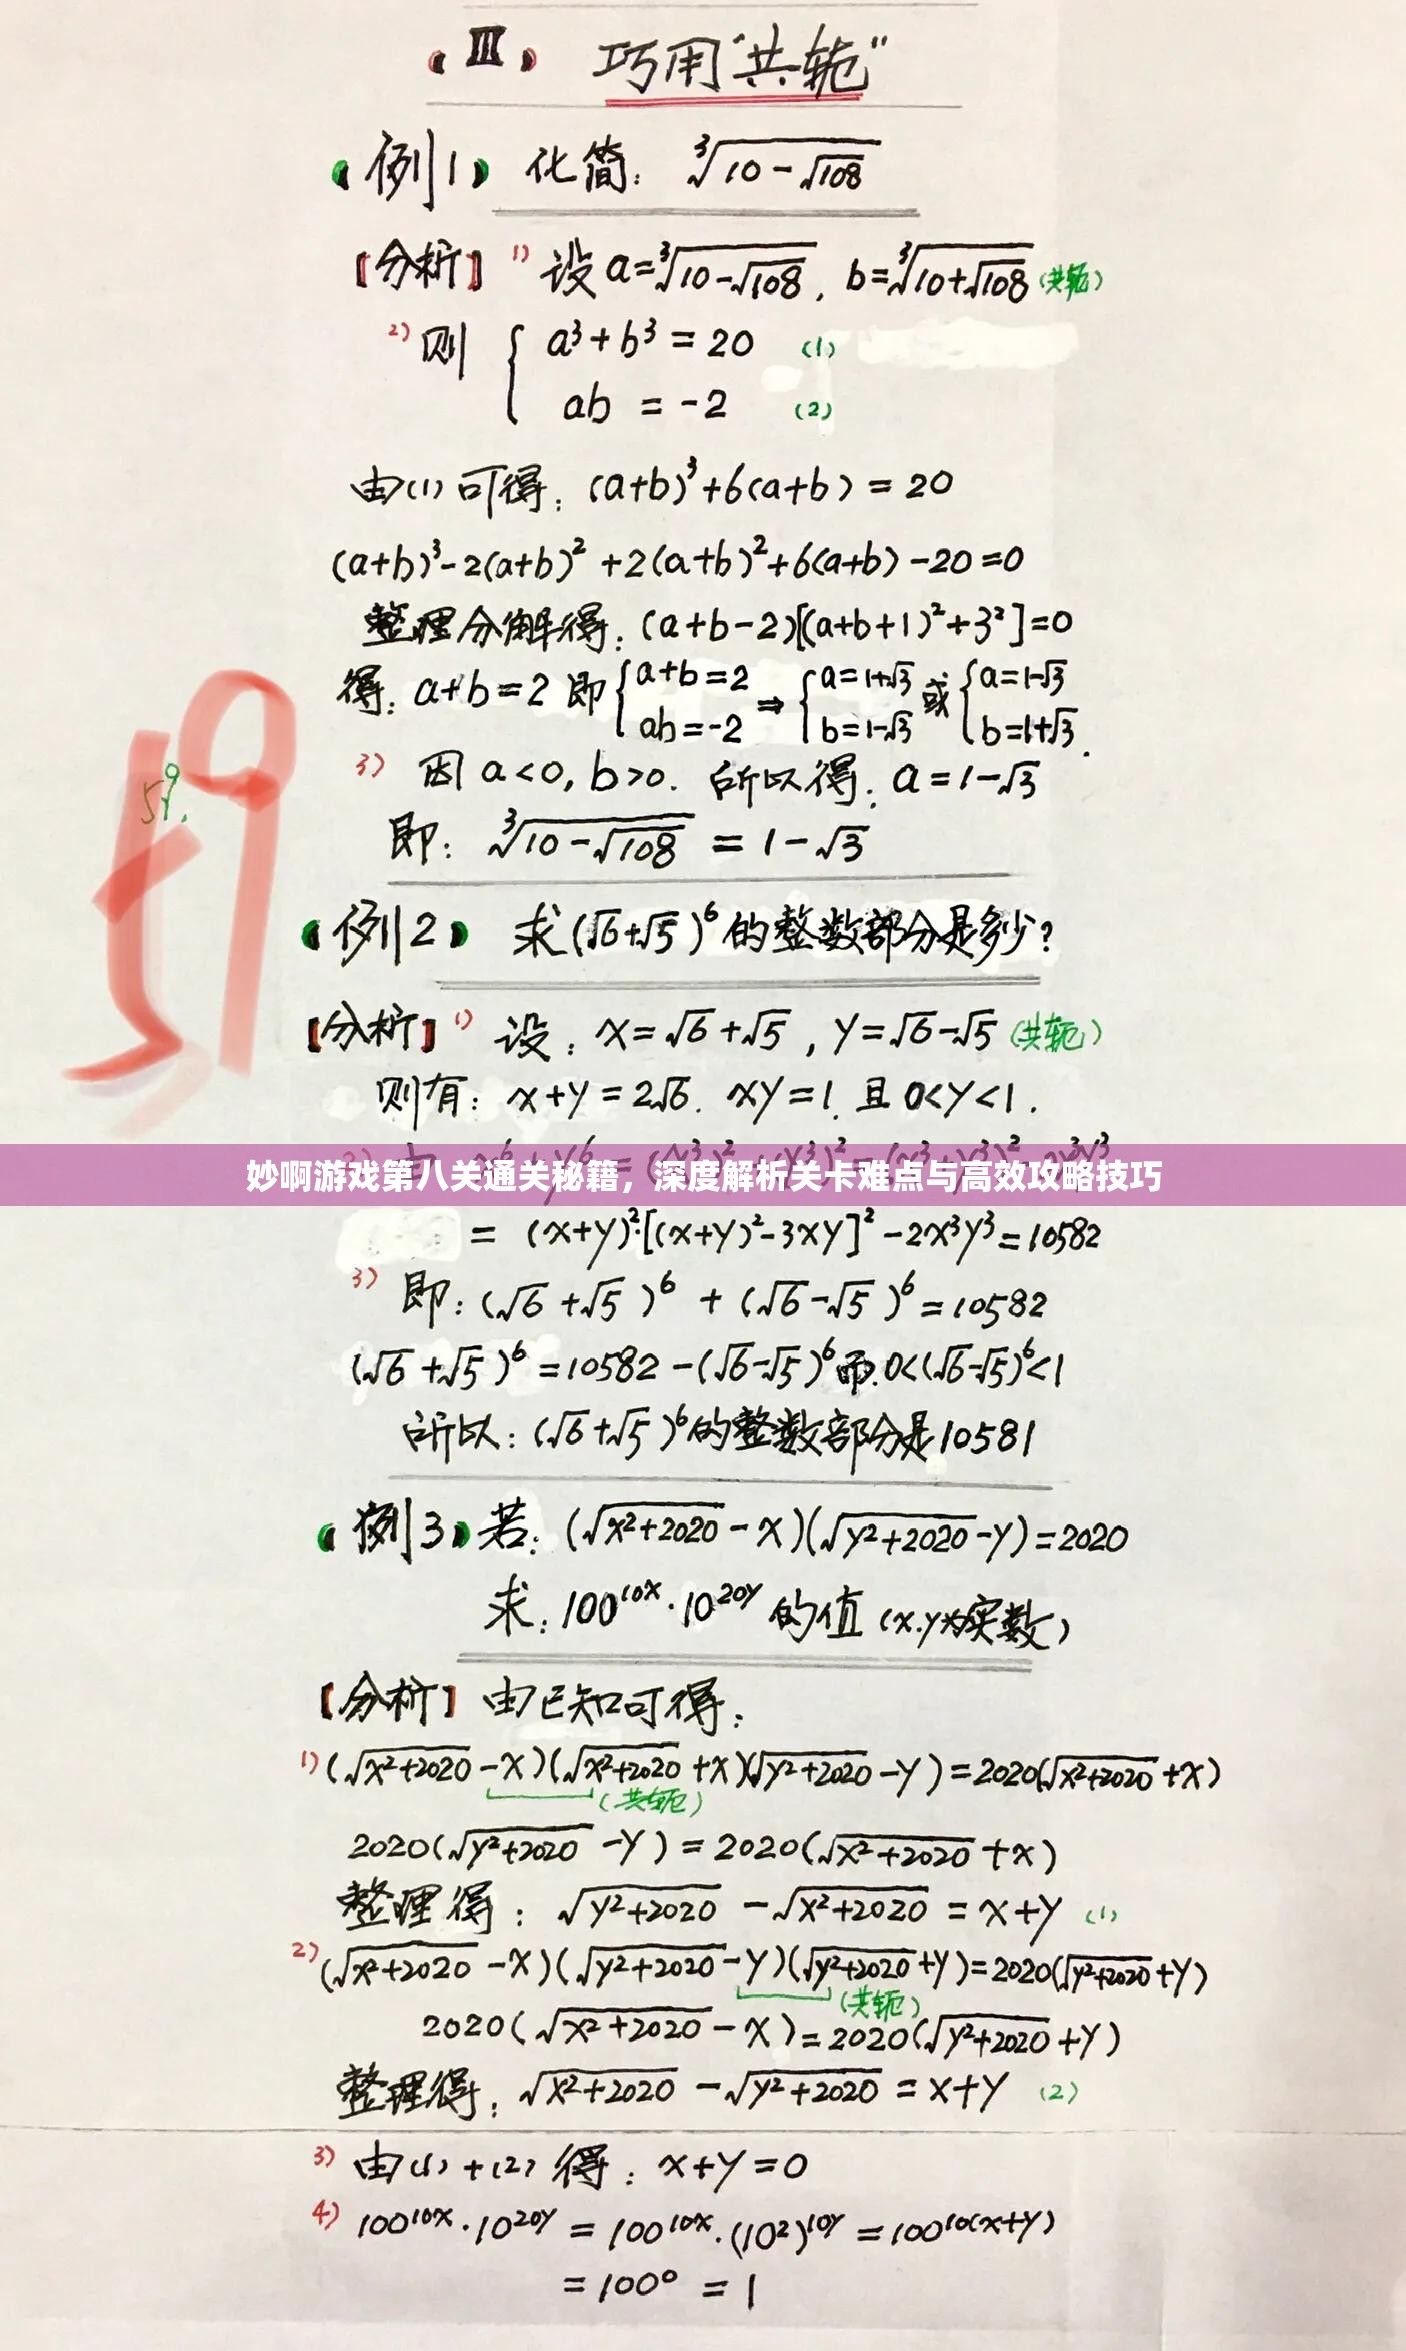 Ⅲ 巧用“共轭”
例1 化简：³√(10-√108)
[分析] 1) 设a=³√(10-√108)，b=³√(10+√108) (共轭)
2) 则 { a³+b³=20 (1)
ab =-2 (2)
由(1)可得：(a+b)³+6(a+b)=20
(a+b)³-2(a+b)²+2(a+b)²+6(a+b)-20=0
整理分解得：(a+b-2)[(a+b+1)²+3²]=0
得：a+b=2 即 {a+b=2 ab=-2 ⇒ {a=1+√3 b=1-√3 或 {a=1-√3 b=1+√3.
3) 因a<0, b>0. 所以得：a=1-√3
59.
59
即：³√(10-√108) = 1-√3
例2 求(√6+√5)⁶的整数部分是多少?
[分析] 1) 设：x=√6+√5，y=√6-√5 (共轭)
则有：x+y=2√6. xy=1. 且0<y<1.
妙啊游戏第八关通关秘籍，深度解析关卡难点与高效攻略技巧
= (x+y)²·[(x+y)²-3xy]²-2x³y³=10582
3) 即：(√6+√5)⁶+(√6-√5)⁶=10582
(√6+√5)⁶=10582-(√6-√5)⁶而.0<(√6-√5)⁶<1
所以：(√6+√5)⁶的整数部分是10581
例3 若：(√(x²+2020)-x)(√(y²+2020)-y)=2020
求：100^(10x)·10^(20y)的值 (x.y为实数)
[分析] 由已知可得：
1) (√(x²+2020)-x)(√(x²+2020)+x)(√(y²+2020)-y)=2020(√(x²+2020)+x)
(共轭)
2020(√(y²+2020)-y)=2020(√(x²+2020)+x)
整理得：√(y²+2020)-√(x²+2020)=x+y (1)
2) (√(x²+2020)-x)(√(y²+2020)-y)(√(y²+2020)+y)=2020(√(y²+2020)+y)
(共轭)
2020(√(x²+2020)-x)=2020(√(y²+2020)+y)
整理得：√(x²+2020)-√(y²+2020)=x+y (2)
3) 由(1)+(2)得：x+y=0
4) 100^(10x)·10^(20y)=100^(10x)·(10²)^(10y)=100^(10(x+y))
=100⁰=1